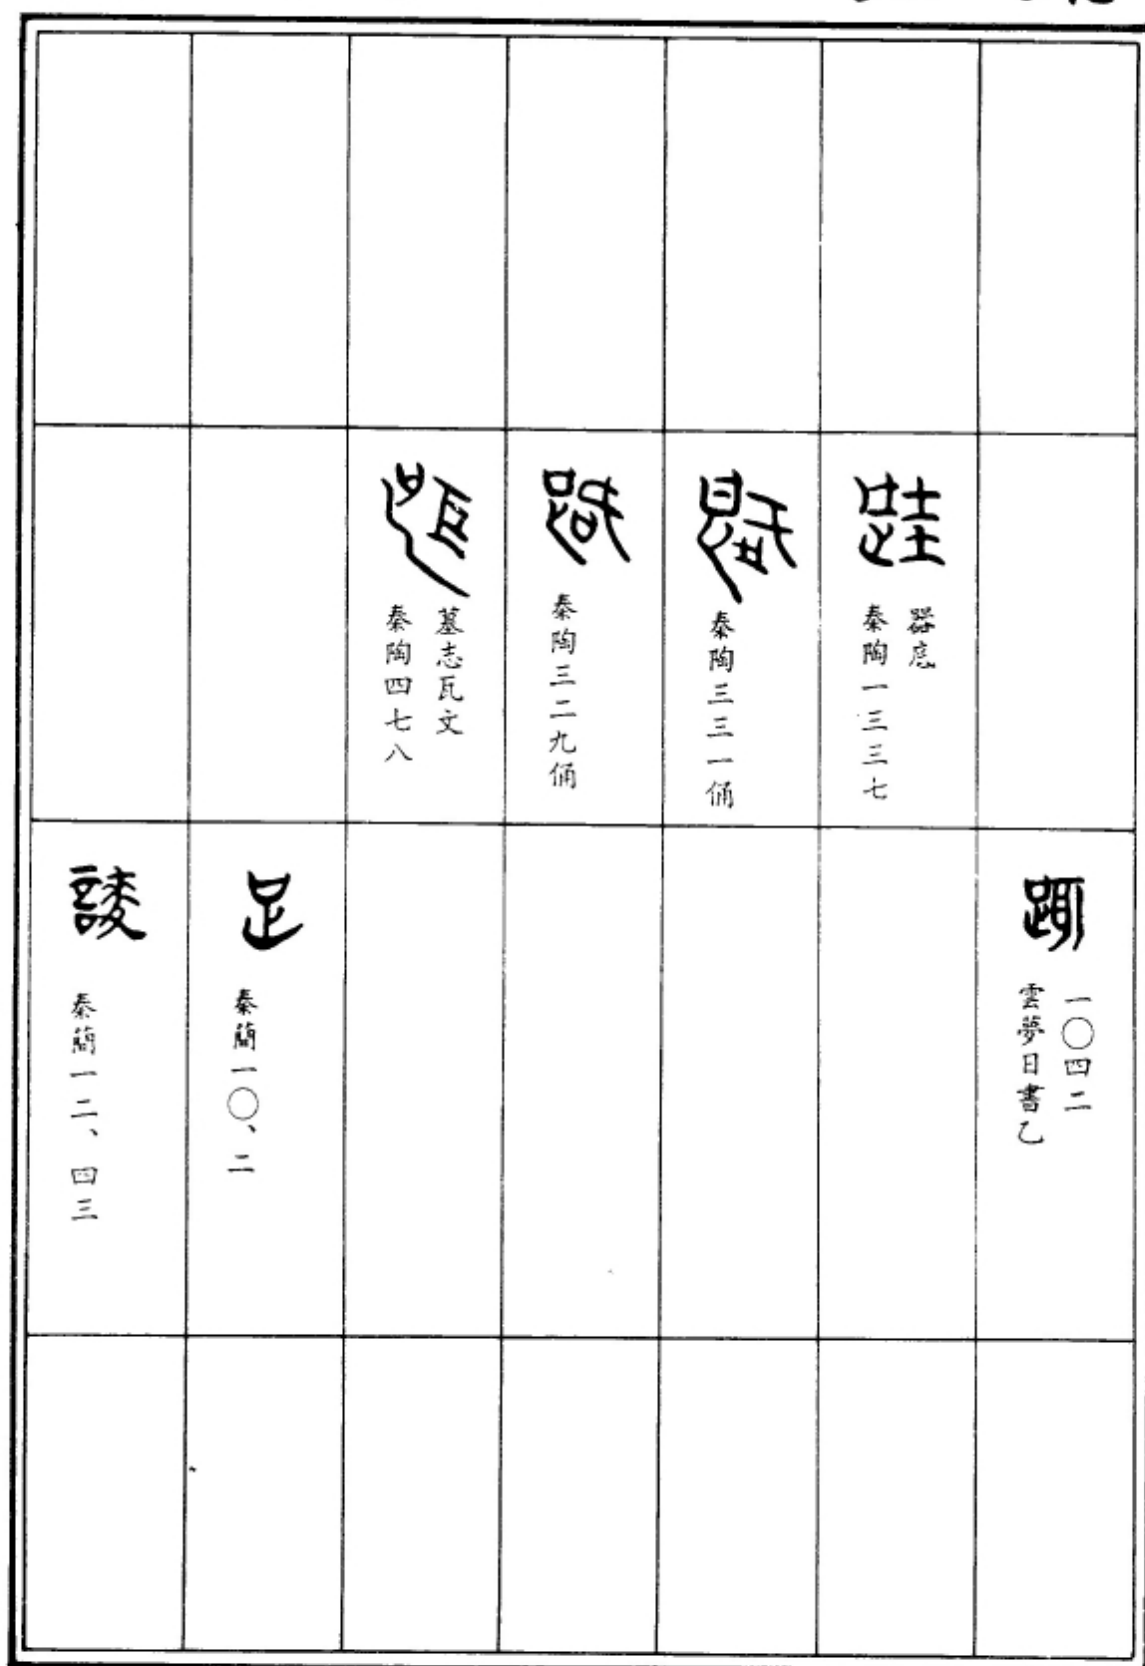 一〇四二
雲夢日書乙
器底
秦陶一三三七
秦陶三三一俑
秦陶三二九俑
墓志瓦文
秦陶四七八
足
秦簡一〇、二
秦簡一二、四三